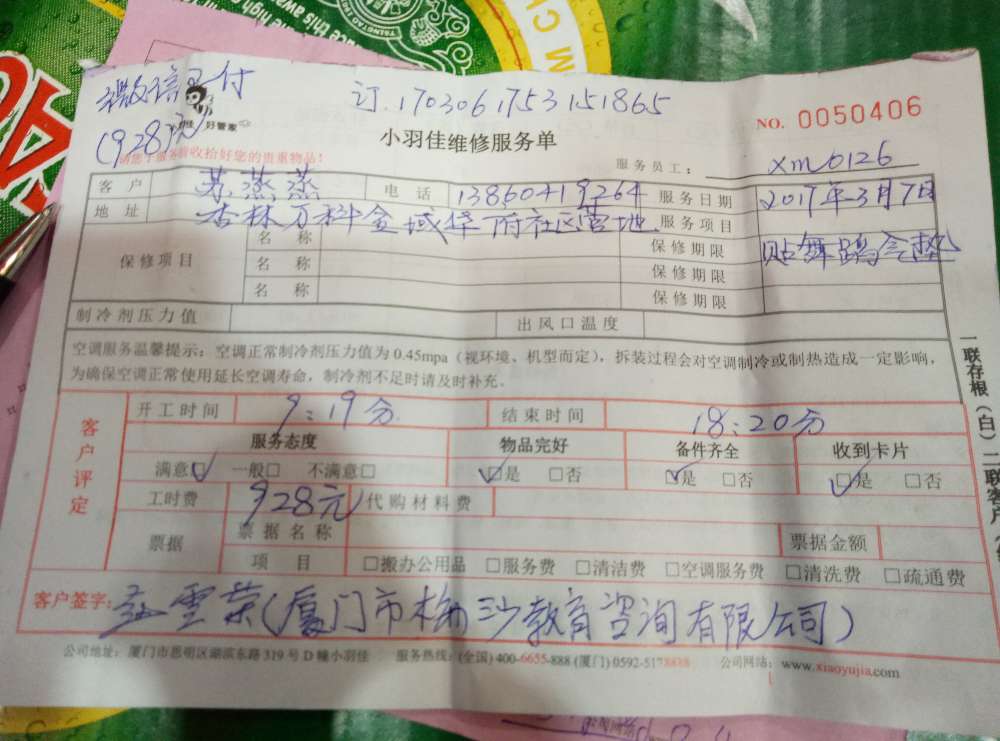 微信 付
(928)元
订.1703061753151865
好管家
NO. 0050406
小羽佳维修服务单
服务员工： xm0126
收拾好您的贵重物品！
客户 苏燕燕 电话 13860419264 服务日期 2017年3月7日
地址 杏林万科金域华府社区营地 服务项目 贴舞蹈
保修项目 名称 保修期限
名称 保修期限
名称 保修期限
制冷剂压力值 出风口温度
空调服务温馨提示：空调正常制冷剂压力值为 0.45mpa（视环境、机型而定），拆装过程会对空调制冷或制热造成一定影响，
为确保空调正常使用延长空调寿命，制冷剂不足时请及时补充。
客户评定
开工时间 9:19分 结束时间 18:20分
服务态度 物品完好 备件齐全 收到卡片
满意☑ 一般□ 不满意□ ☑是 □否 ☑是 □否 ☑是 □否
工时费 928元 代购材料费
票据 票据名称 票据金额
项目 □搬办公用品 □服务费 □清洁费 □空调服务费 □清洗费 □疏通费
客户签字： 雲荣（厦门市 沙教育咨询有限公司）
公司地址：厦门市思明区湖滨东路 319 号 D 幢小羽佳 服务热线：(全国) 400-6655-888 (厦门) 0592-5178888 公司网站：www.xiaoyujia.com
一联存根（白）二联客户